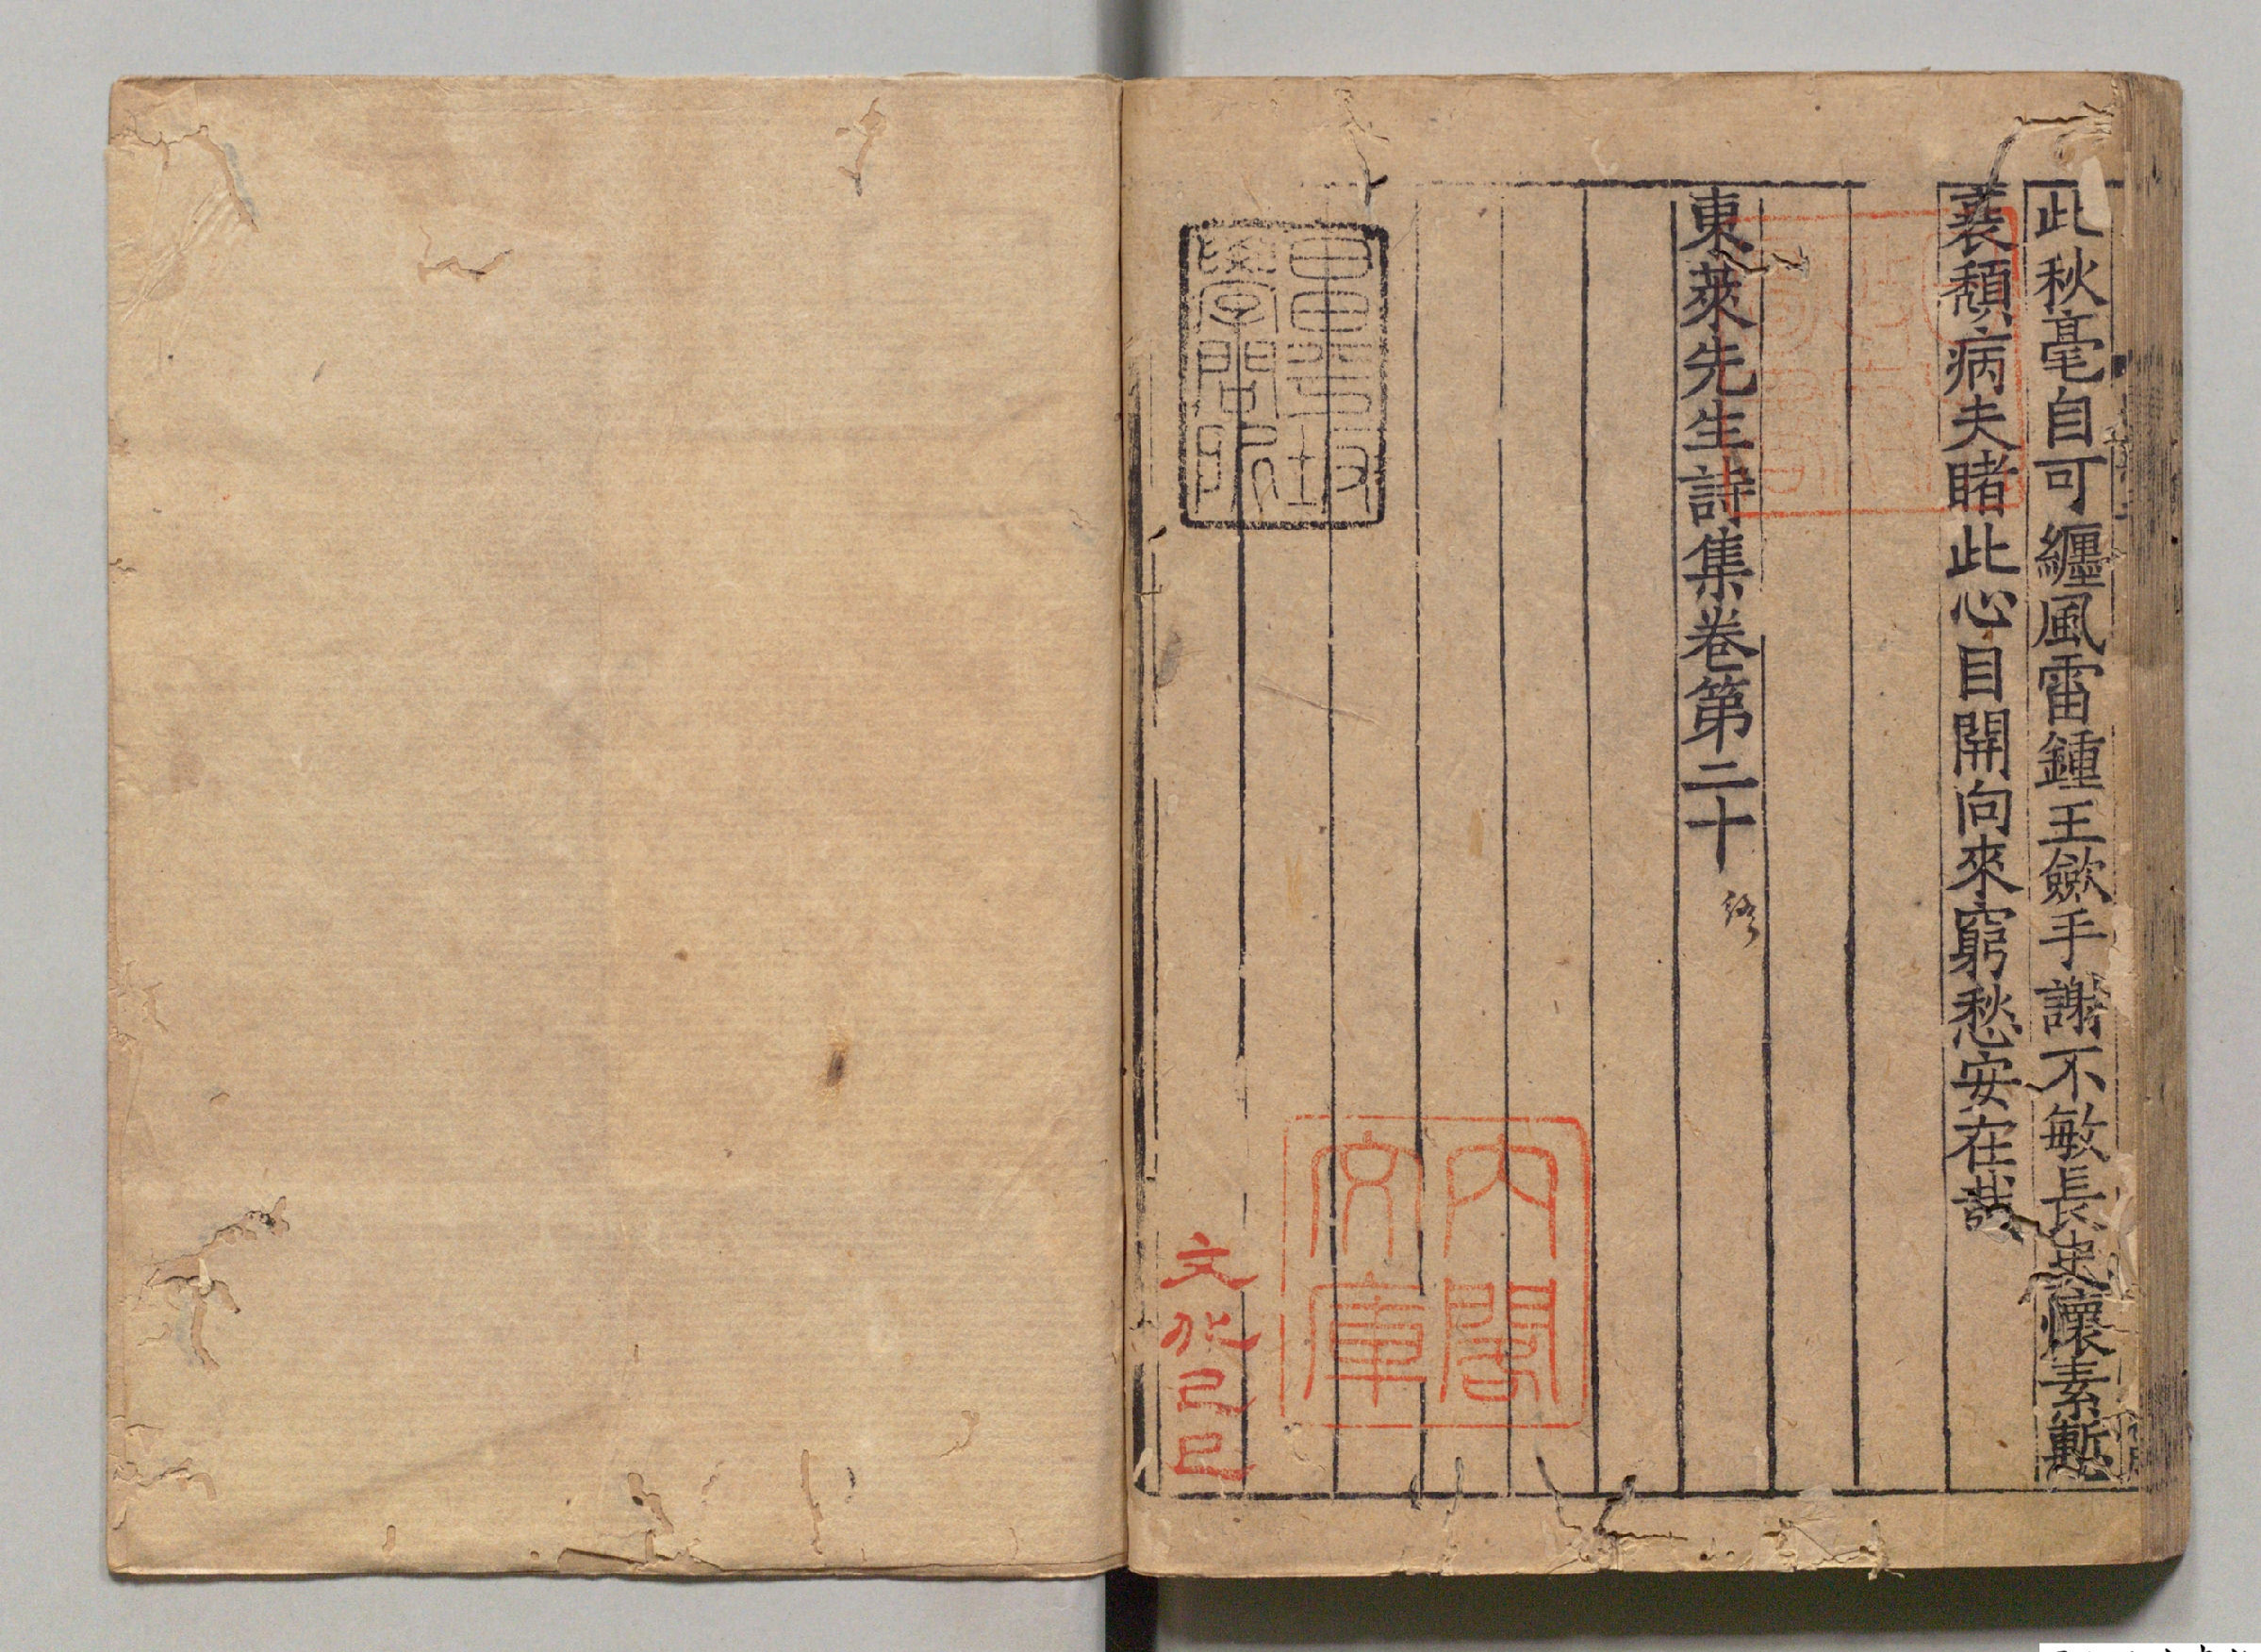 此秋毫自可纏風雷鍾王斂手謝不敏長史懷素慙
衰頹病夫睹此心目開向來窮愁安在哉
東萊先生詩集卷第二十
終
昌平坂
學問所
內閣
文庫
文化己巳